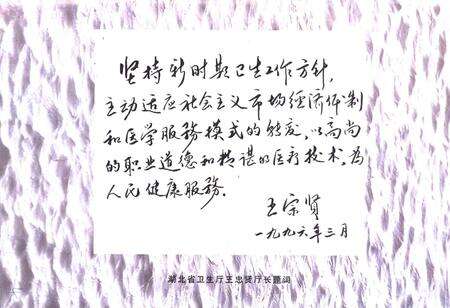 坚持新时期卫生工作方针，
主动适应社会主义市场经济体制
和医学服務模式的转变，以高尚
的职业道德和精谌的医疗技术，为
人民健康服務．
王宗贤
一九九六年三月
湖北省卫生厅王忠贤厅长题词